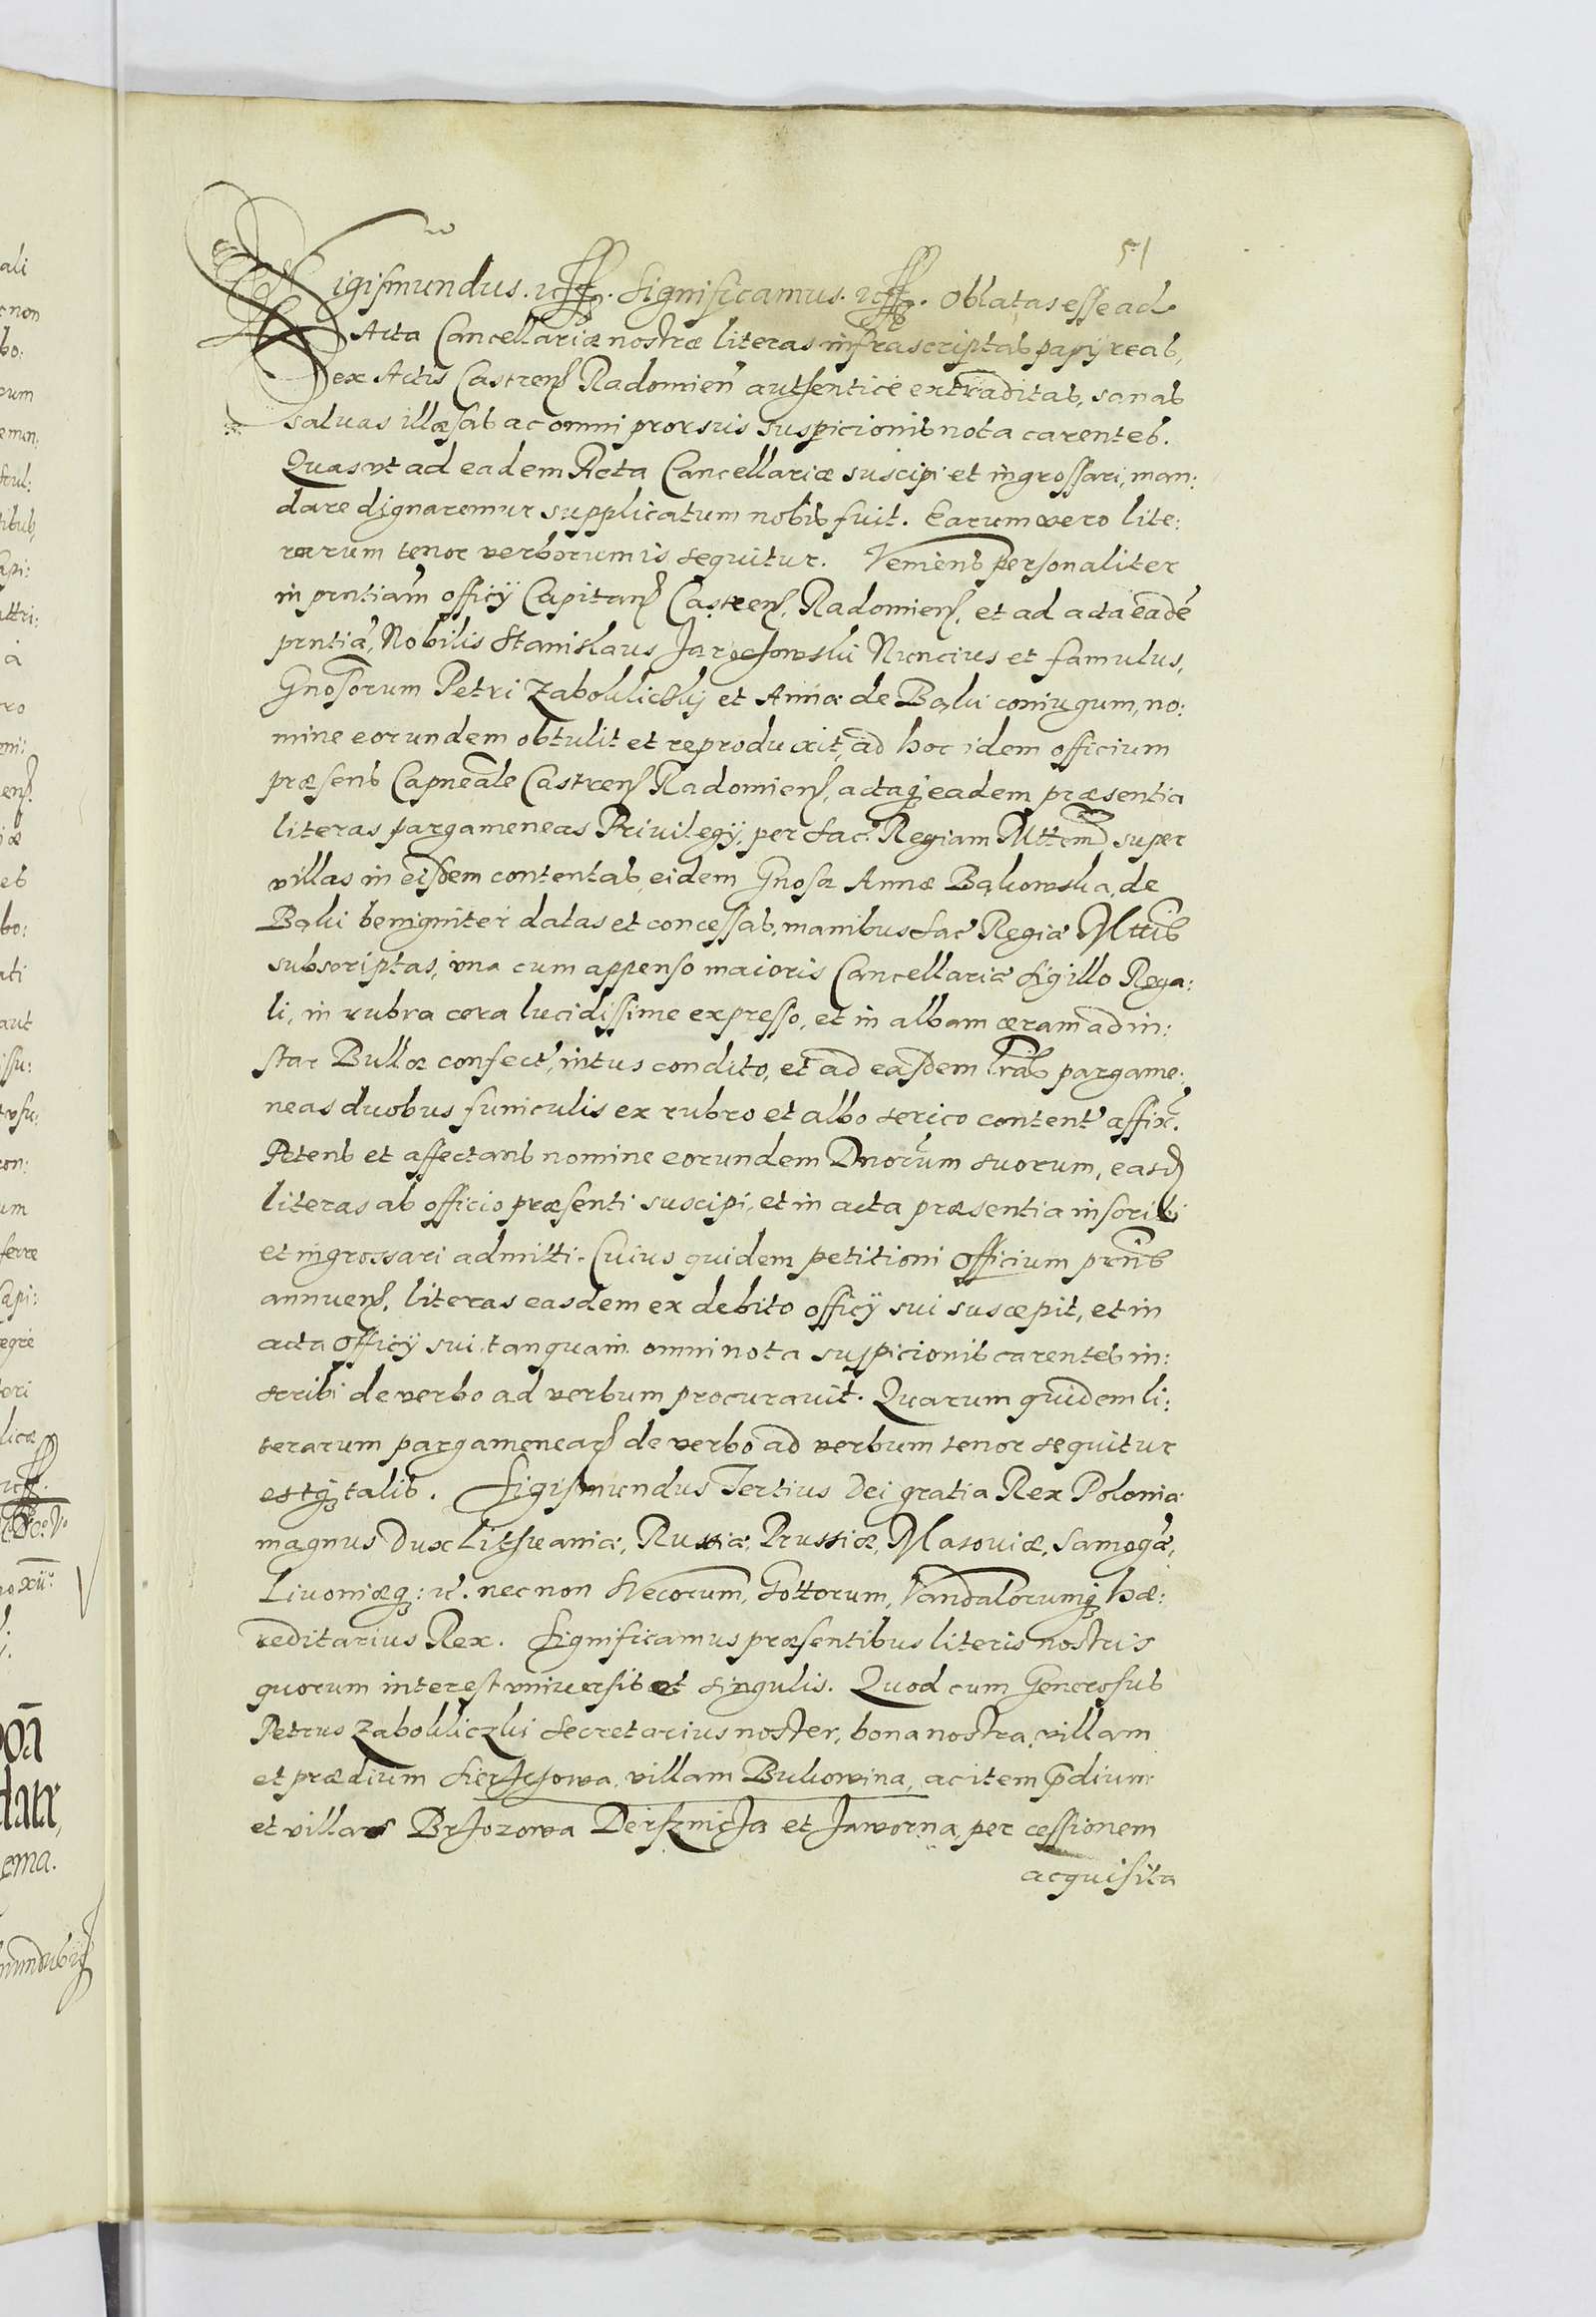 51
Sigismundus. etc. Significamus. etc. Oblatas esse ad
Acta Cancellariæ nostræ literas infrascriptas papyreas,
ex Actis Castrens Radomien authentice extraditas, sanas
saluas illæsas ac omni prorsus suspicionis nota carentes.
Quas vt ad eadem Acta Cancellariæ suscipi et ingrossari, man:
dare dignaremur supplicatum nobis fuit. Earum vero lite:
rarum tenor verborum is sequitur. Veniens personaliter
in prntiam officÿ Capitan Castrens, Radomiens, et ad acta eadē
prntia, Nobilis Stanislaus Nuncius et famulus,
Gnosorum Petri Zabokliczkij et Annæ de Bąki coniugum, no:
mine eorundem obtulit et reproduxit, ad hoc idem officium
præsens Capneale Castrens Radomiens, actaq eadem præsentia
literas pargameneas Privilegÿ, per Sac. Regiam Mttem, super
villas in eisdem contentas, eidem Gnosæ Annæ Bąkowska, de
Bąki benigniter datas et concessas, manibus Sac Regiæ Mttis
subscriptas, vna cum appenso maioris Cancellariæ Sigillo Rega:
li, in rubra cera lucidissime expresso, et in albam ceram ad in:
star Bullæ confect, intus condito, et ad easdem lras pargame:
neas duobus funiculis ex rubro et albo serico content affix.
Petens et affectans nomine eorundem Dnorum suorum, easd
literas ab officio præsenti suscipi, et in acta præsentia inscribi
et ingrossari admitti. Cuius quidem petitioni Officium prns
annuens, literas easdem ex debito officÿ sui suscepit, et in
acta Officÿ sui, tanquam omni nota suspicionis carentes in:
scribi de verbo ad verbum procuravit. Quarum quidem li:
terarum pargamenear de verbo ad verbum tenor sequitur
estq talis. Sigismundus Tertius Dei gratia Rex Poloniæ
magnus Dux Lithuaniæ, Russiæ, Prussiæ, Masouiæ, Samogæ,
Livoniæq: etc. nec non Svecorum, Gottorum, Vandalorumq hæ:
reditarius Rex. Significamus præsentibus literis nostris
quorum interest vniversis et singulis. Quod cum Generosus
Petrus Zabokliczki Secretarius noster, bona nostra, villam
et prædium villam Bukowina, ac item prdium
et villas Brzozowa et Jaworna, per cessionem
acquisita